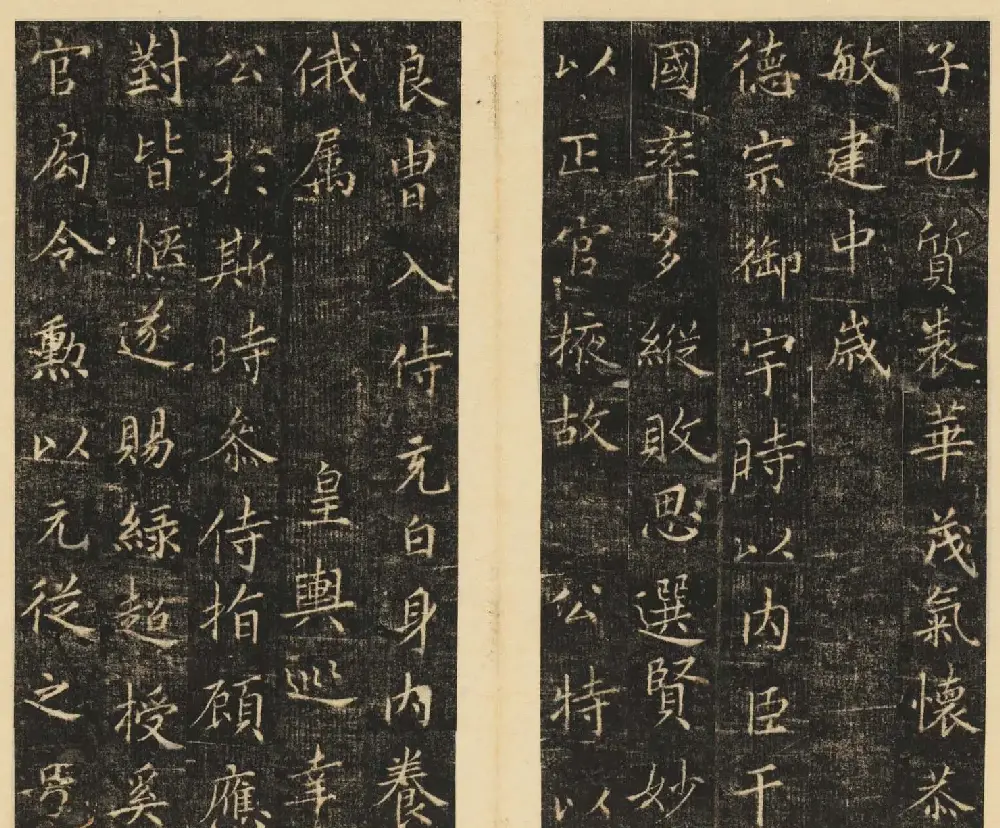 子也質表華茂氣懷恭
敏建中歲
德宗御宇時以内臣干
國率多縱敗思選賢妙
以正官掖故公特以
良胄入侍充白身内養
俄属皇輿巡幸
公於斯時叅侍指顧應
對皆愜遂賜緑超授奚
官局令勳以元從之号